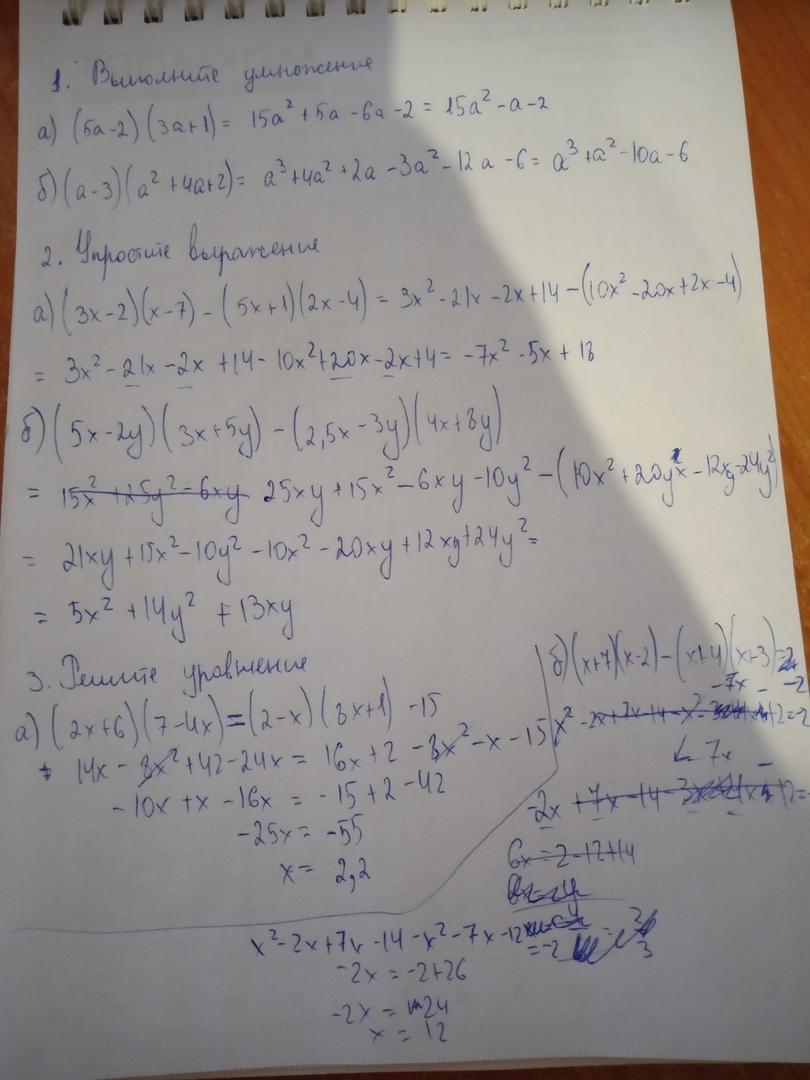 1. Выполните умножение
а) (5a-2)(3a+1) = 15a² + 5a - 6a - 2 = 15a² - a - 2
б) (a-3)(a² + 4a+2) = a³ + 4a² + 2a - 3a² - 12a - 6 = a³ + a² - 10a - 6
2. Упростите выражение
а) (3x-2)(x-7) - (5x+1)(2x-4) = 3x² - 21x - 2x + 14 - (10x² - 20x + 2x - 4)
= 3x² - 21x - 2x + 14 - 10x² + 20x - 2x + 4 = -7x² - 5x + 18
б) (5x-2y)(3x+5y) - (2,5x - 3y)(4x+8y)
= 15x² + 25y² - 6xy 25xy + 15x² - 6xy - 10y² - (10x² + 20yx - 12xy - 24y²)
= 21xy + 15x² - 10y² - 10x² - 20xy + 12xy + 24y² =
= 5x² + 14y² + 13xy
3. Решите уравнение
а) (2x+6)(7-4x) = (2-x)(8x+1) - 15
14x - 8x² + 42 - 24x = 16x + 2 - 8x² - x - 15
-10x + x - 16x = -15 + 2 - 42
-25x = -55
x = 2,2
б) (x+7)(x-2) - (x+4)(x+3) = -2
-7x -
x² - 2x + 7x - 14 - x²
7x -
-2x + 7x - 14 - 3x
6x = 2 - 12 + 14
x² - 2x + 7x - 14 - x² - 7x - 12 = -2
-2x = -2 + 26
-2x = 24
x = 12